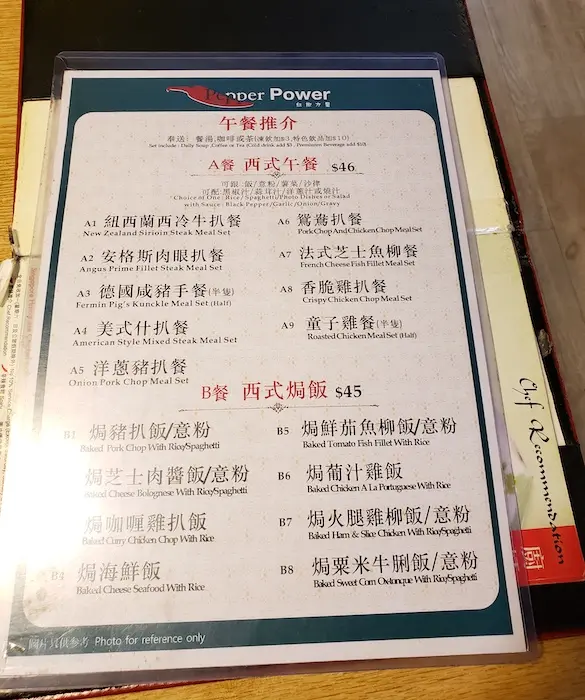 Pepper Power
午餐推介
奉送：餐湯,咖啡或茶(凍飲加$3,特色飲品加$10)
Set include : Daily Soup ,Coffee or Tea (Cold drink add $3 , Premium Beverage add $10)
A餐 西式午餐 $46
可跟:飯/意粉/薯菜/沙律
可配:黑椒汁/蒜茸汁/洋蔥汁或燒汁
*Choice of One :Rice/ Spaghetti/Photo Dishes or Salad
with Sauce : Black Pepper/Garlic/Onion/Gravy
A1 紐西蘭西冷牛扒餐
New Zealand Sirioin Steak Meal Set
A2 安格斯肉眼扒餐
Angus Prime Fillet Steak Meal Set
A3 德國咸豬手餐(半隻)
Fermin Pig's Kunckle Meal Set (Half)
A4 美式什扒餐
American Style Mixed Steak Meal Set
A5 洋蔥豬扒餐
Onion Pork Chop Meal Set
A6 鴛鴦扒餐
Pork Chop And Chicken Chop Meal Set
A7 法式芝士魚柳餐
French Cheese Fish Fillet Meal Set
A8 香脆雞扒餐
Crispy Chicken Chop Meal Set
A9 童子雞餐(半隻)
Roasted Chicken Meal Set (Half)
B餐 西式焗飯 $45
B1 焗豬扒飯/意粉
Baked Pork Chop With Rice/Spaghetti
焗芝士肉醬飯/意粉
Baked Cheese Bolognese With Rice/Spaghetti
焗咖喱雞扒飯
Baked Curry Chicken Chop With Rice
B4 焗海鮮飯
Baked Cheese Seafood With Rice
B5 焗鮮茄魚柳飯/意粉
Baked Tomato Fish Fillet With Rice
B6 焗葡汁雞飯
Baked Chicken A La Portuguese With Rice
B7 焗火腿雞柳飯/意粉
Baked Ham & Slice Chicken With Rice/Spaghetti
B8 焗粟米牛脷飯/意粉
Baked Sweet Corn Oxtongue With Rice/Spaghetti
圖片只供參考 Photo for reference only
Chef Recommendation